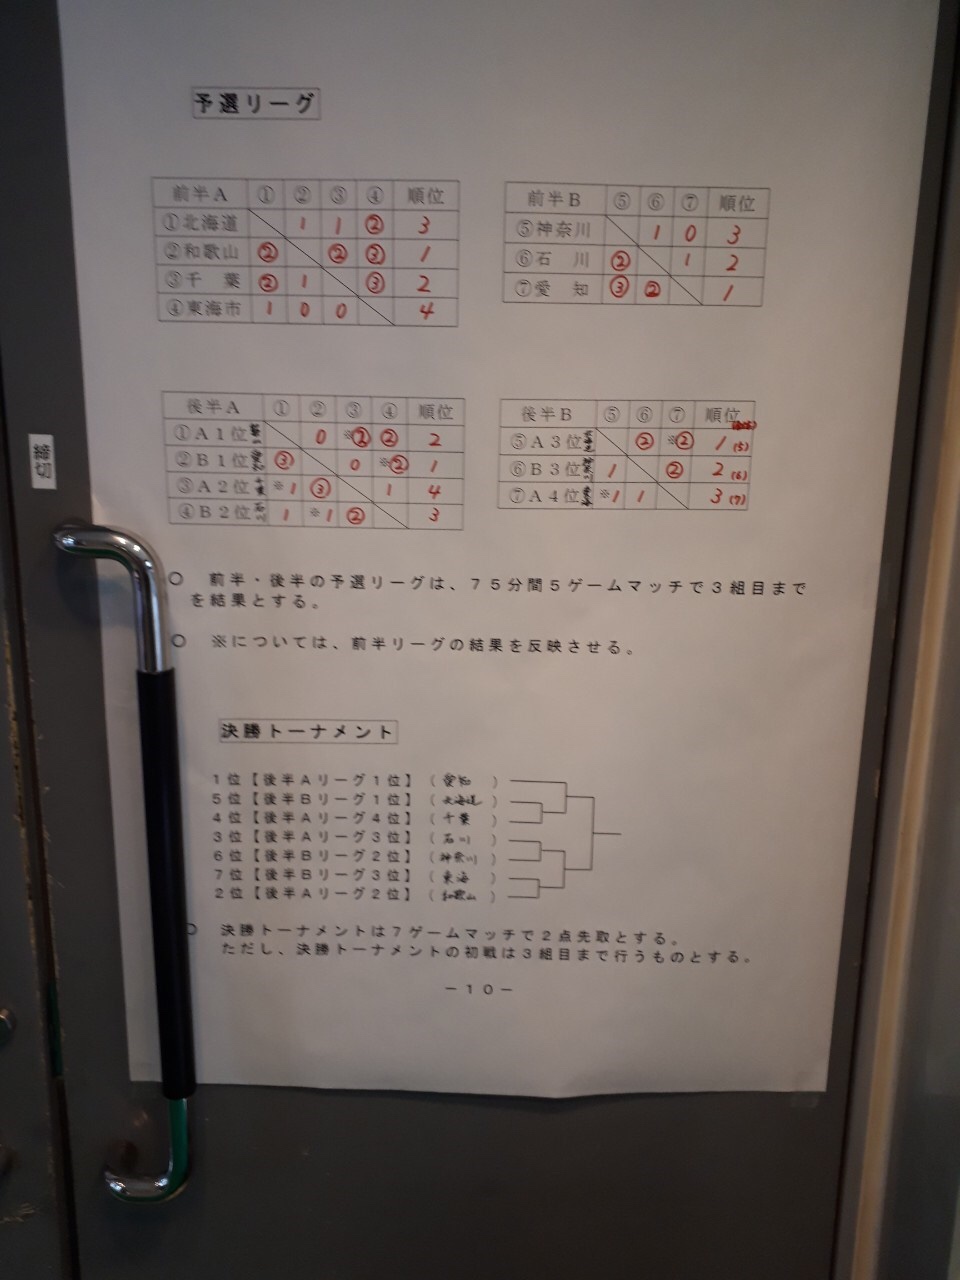 予選リーグ
前半A ① ② ③ ④ 順位
①北海道 1 1 ② 3
②和歌山 ② ② ③ 1
③千 葉 ② 1 ③ 2
④東海市 1 0 0 4
前半B ⑤ ⑥ ⑦ 順位
⑤神奈川 1 0 3
⑥石 川 ② 1 2
⑦愛 知 ③ ② 1
後半A ① ② ③ ④ 順位
①A1位 0 ※② ② 2
②B1位 愛知 ③ 0 ※② 1
③A2位 千葉 ※1 ③ 1 4
④B2位 石川 1 ※1 ② 3
後半B ⑤ ⑥ ⑦ 順位
⑤A3位 北海道 ② ※② 1 (5)
⑥B3位 神奈川 1 ② 2 (6)
⑦A4位 ※1 1 3 (7)
締切
○ 前半・後半の予選リーグは、75分間5ゲームマッチで3組目まで
を結果とする。
○ ※については、前半リーグの結果を反映させる。
決勝トーナメント
1位【後半Aリーグ1位】（愛知）
5位【後半Bリーグ1位】（北海道）
4位【後半Aリーグ4位】（千葉）
3位【後半Aリーグ3位】（石川）
6位【後半Bリーグ2位】（神奈川）
7位【後半Bリーグ3位】（東海）
2位【後半Aリーグ2位】（和歌山）
○ 決勝トーナメントは7ゲームマッチで2点先取とする。
ただし、決勝トーナメントの初戦は3組目まで行うものとする。
－10－